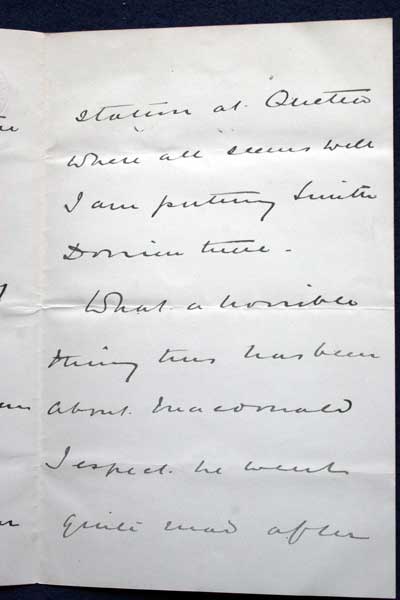 station at Quetta
where all seems well
I am putting Smith
Dorrien there -
What a horrible
thing this has been
about Macdonald
I expect he went
quite mad after